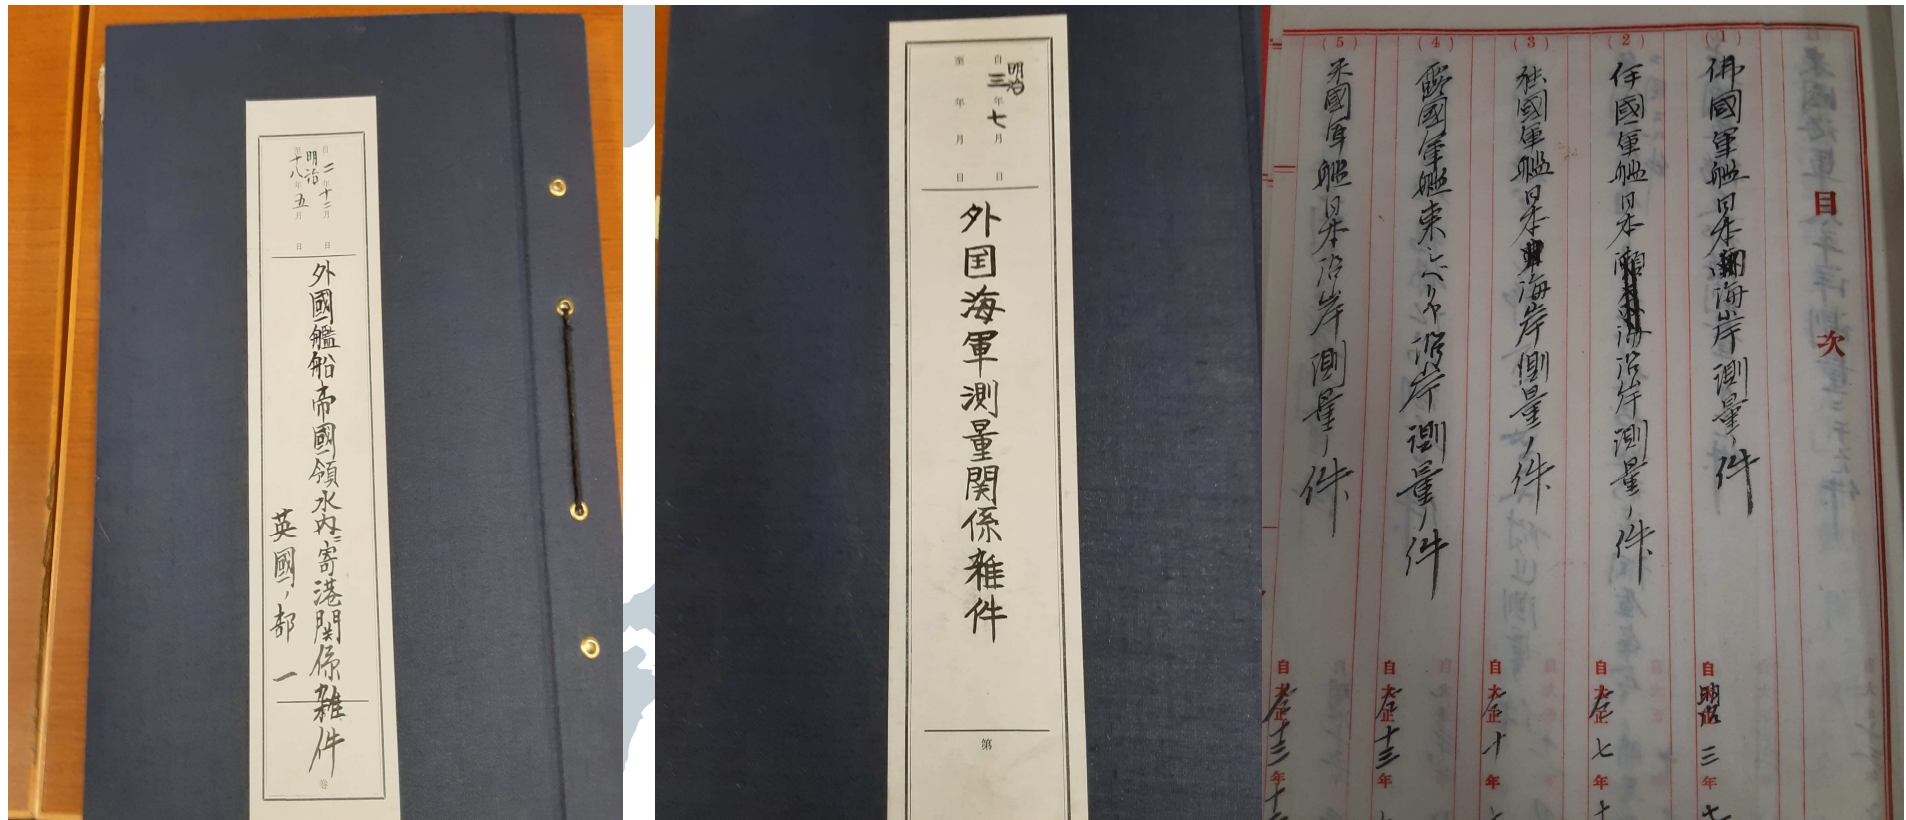 自 二年十二月 日
明治
至 十八年五月 日
外國艦船帝國領水内ニ寄港関係雑件
英國ノ部 一
巻
明治
自 三年七月 日
至 年 月 日
外国海軍測量関係雑件
第
目次
(1)
佛國軍艦日本海岸測量ノ件
自 明治 三年七
(2)
伊國軍艦日本沿岸測量ノ件
自 大正 七年十
(3)
独國軍艦日本海岸測量ノ件
自 大正 十年
(4)
露國軍艦東シベリヤ沿岸測量ノ件
自 大正 十三年
(5)
米國軍艦日本沿岸測量ノ件
自 大正 十三年十